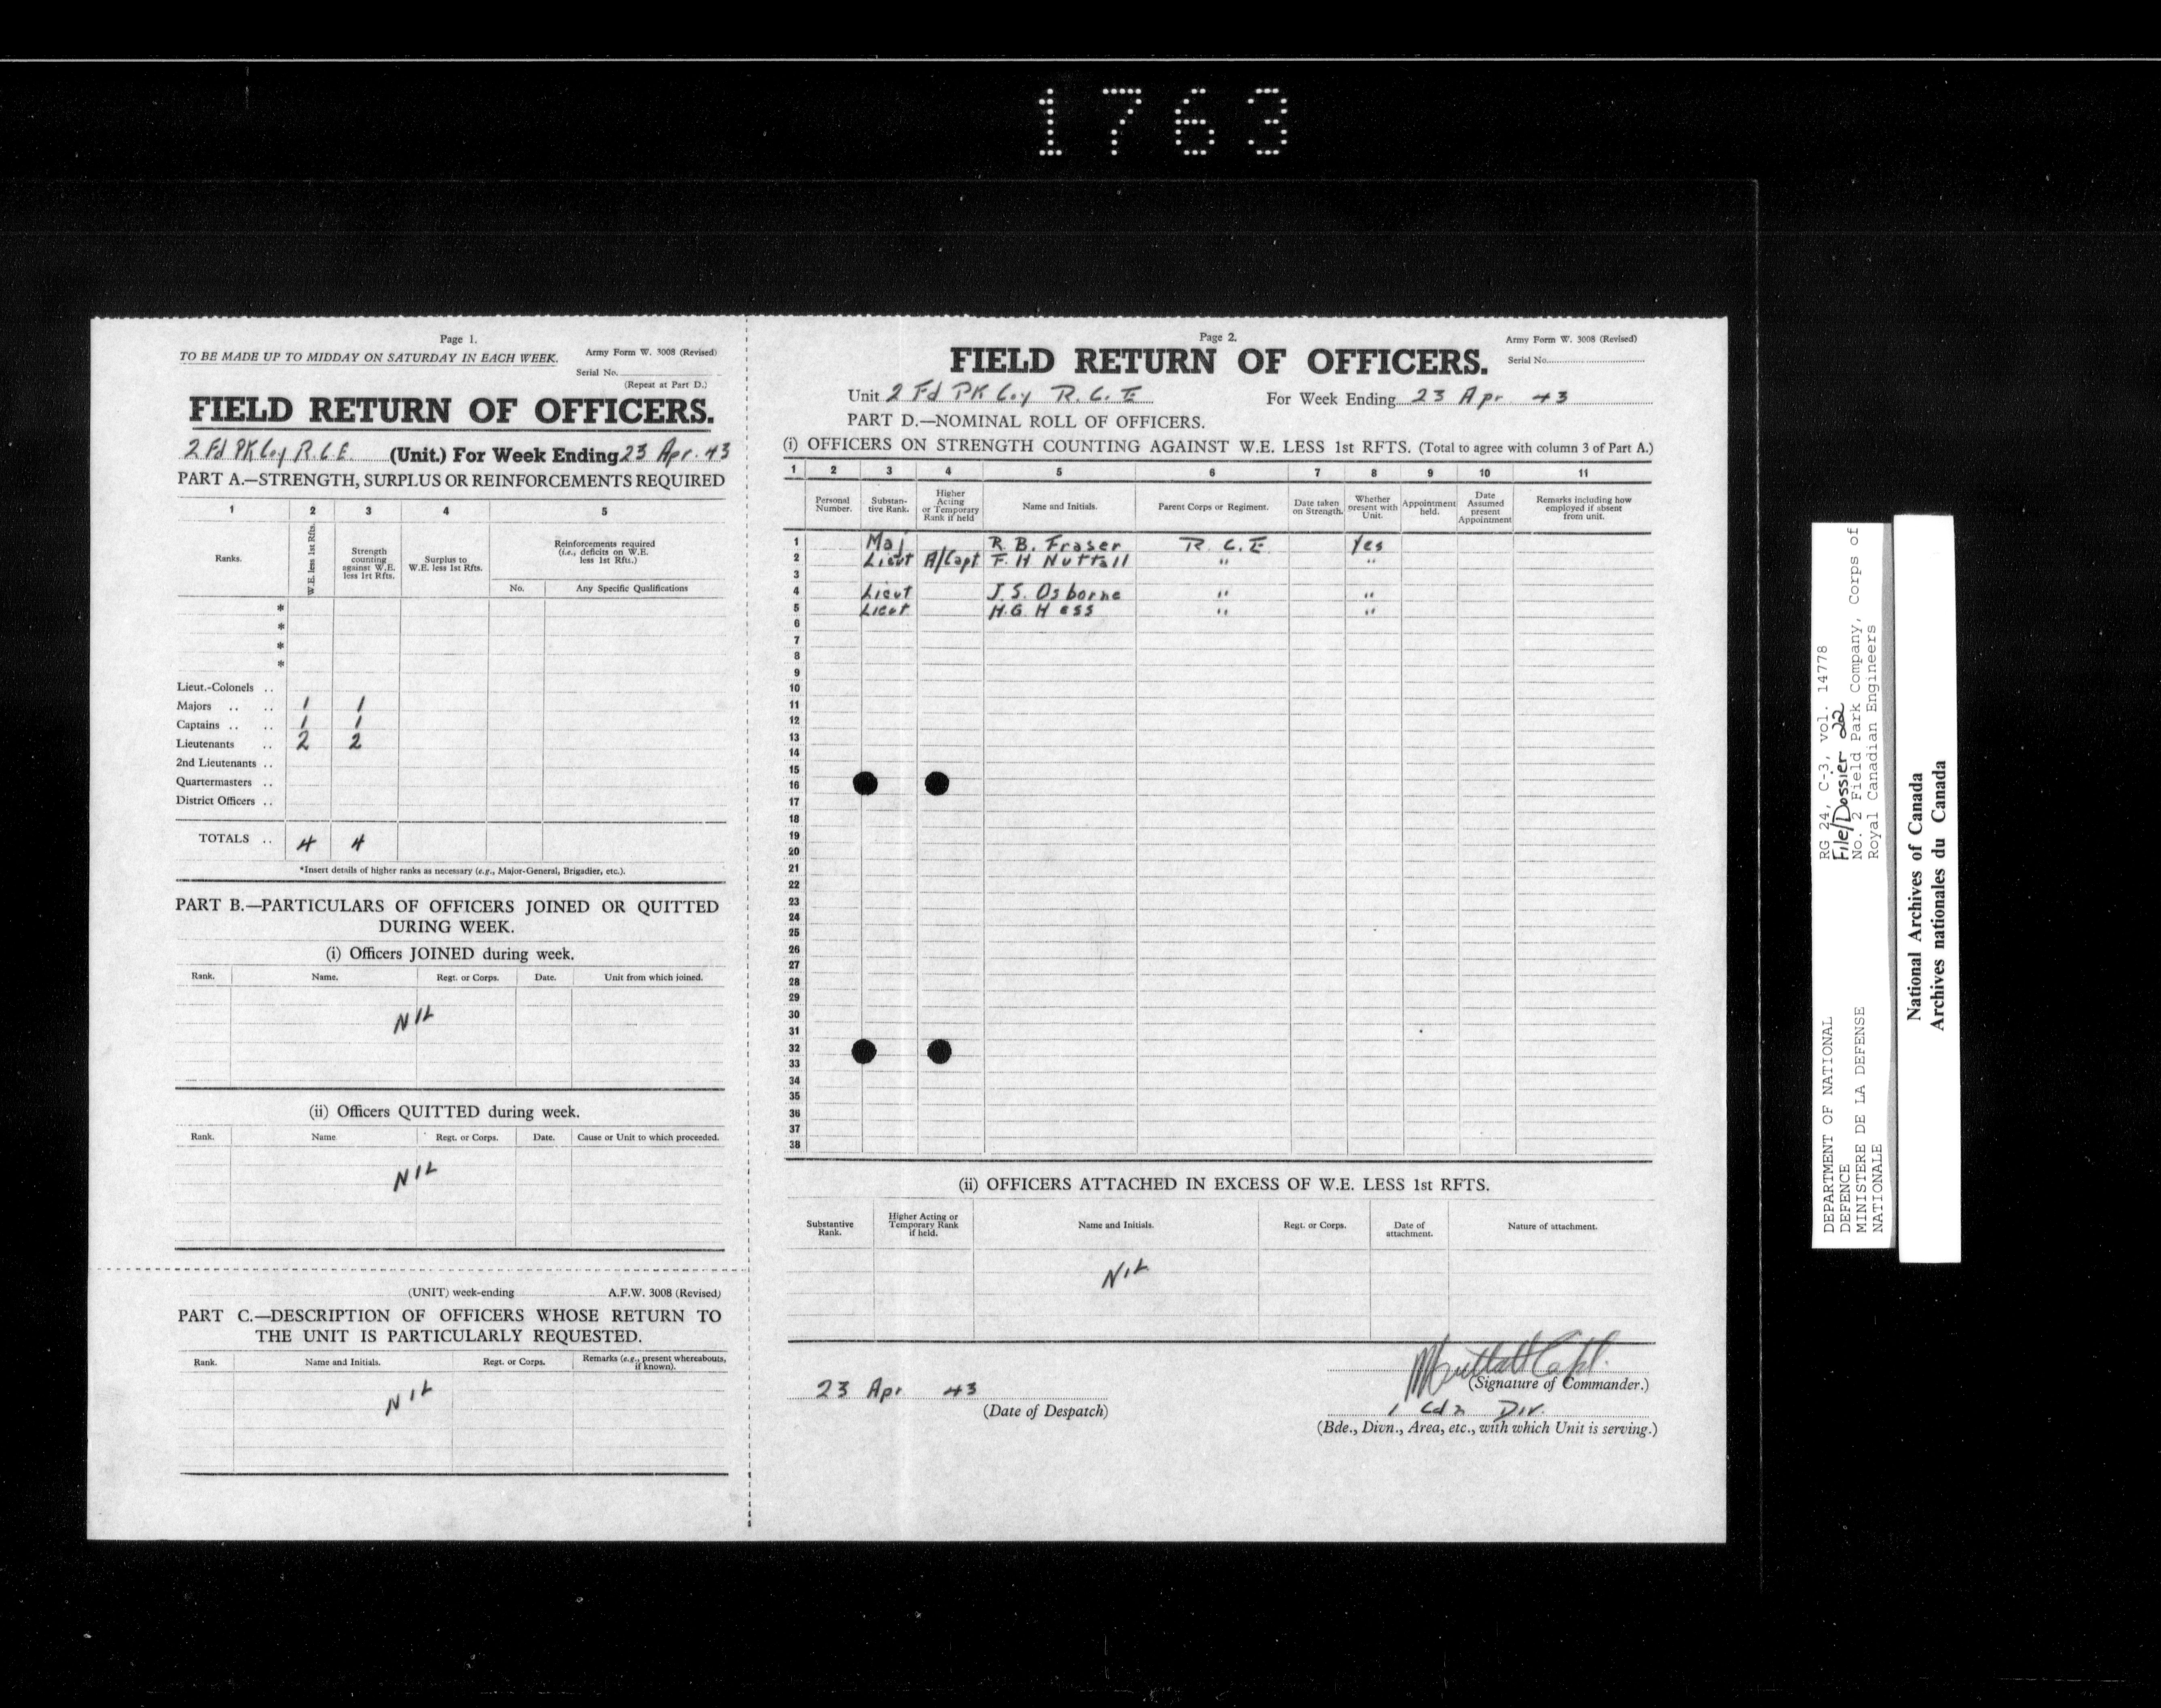 1763
Page 1.
TO BE MADE UP TO MIDDAY ON SATURDAY IN EACH WEEK.
Army Form W. 3008 (Revised)
Serial No.
(Repeat at Part D.)
FIELD RETURN OF OFFICERS.
2 Fd PK Coy R.C.E. (Unit.) For Week Ending 23 Apr. 43
PART A.—STRENGTH, SURPLUS OR REINFORCEMENTS REQUIRED
1 2 3 4 5
Ranks.
W.E. less 1st Rfts.
Strength counting against W.E. less 1st Rfts.
Surplus to W.E. less 1st Rfts.
Reinforcements required (i.e., deficits on W.E. less 1st Rfts.)
No.
Any Specific Qualifications
*
*
*
*
Lieut.-Colonels ..
Majors .. .. 1 1
Captains .. .. 1 1
Lieutenants .. 2 2
2nd Lieutenants ..
Quartermasters ..
District Officers ..
TOTALS .. 4 4
*Insert details of higher ranks as necessary (e.g., Major-General, Brigadier, etc.).
PART B.—PARTICULARS OF OFFICERS JOINED OR QUITTED
DURING WEEK.
(i) Officers JOINED during week.
Rank. Name. Regt. or Corps. Date. Unit from which joined.
NIL
(ii) Officers QUITTED during week.
Rank. Name Regt. or Corps. Date. Cause or Unit to which proceeded.
NIL
(UNIT) week-ending A.F.W. 3008 (Revised)
PART C.—DESCRIPTION OF OFFICERS WHOSE RETURN TO
THE UNIT IS PARTICULARLY REQUESTED.
Rank. Name and Initials. Regt. or Corps. Remarks (e.g., present whereabouts, if known).
NIL
Page 2.
Army Form W. 3008 (Revised)
FIELD RETURN OF OFFICERS.
Serial No.
Unit 2 Fd PK Coy R.C.E For Week Ending 23 Apr. 43
PART D.—NOMINAL ROLL OF OFFICERS.
(i) OFFICERS ON STRENGTH COUNTING AGAINST W.E. LESS 1st RFTS. (Total to agree with column 3 of Part A.)
1 2 3 4 5 6 7 8 9 10 11
Personal Number.
Substantive Rank.
Higher Acting or Temporary Rank if held
Name and Initials.
Parent Corps or Regiment.
Date taken on Strength.
Whether present with Unit.
Appointment held.
Date Assumed present Appointment
Remarks including how employed if absent from unit.
1 Maj R. B. Fraser R.C.E. Yes
2 Lieut A/Capt F. H Nuttall " "
3
4 Lieut J. S. Osborne " "
5 Lieut H. G. Hess " "
6
7
8
9
10
11
12
13
14
15
16
17
18
19
20
21
22
23
24
25
26
27
28
29
30
31
32
33
34
35
36
37
38
(ii) OFFICERS ATTACHED IN EXCESS OF W.E. LESS 1st RFTS.
Substantive Rank.
Higher Acting or Temporary Rank if held.
Name and Initials.
Regt. or Corps.
Date of attachment.
Nature of attachment.
NIL
Nuttall Capt.
(Signature of Commander.)
23 Apr 43
(Date of Despatch)
1 Cdn Div.
(Bde., Divn., Area, etc., with which Unit is serving.)
DEPARTMENT OF NATIONAL
DEFENCE
MINISTERE DE LA DEFENSE
NATIONALE
RG 24, C-3, vol. 14778
File/Dossier 22
No. 2 Field Park Company, Corps of
Royal Canadian Engineers
National Archives of Canada
Archives nationales du Canada